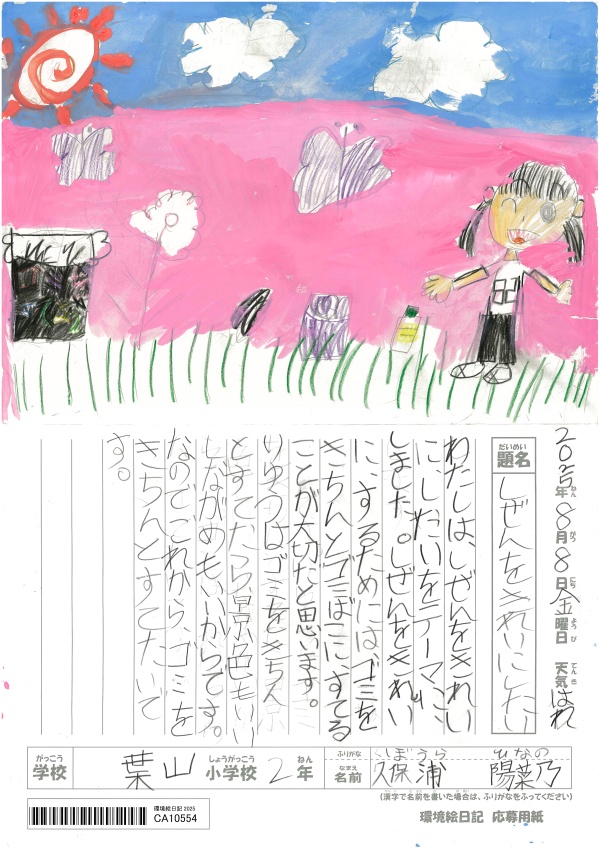 2025年8月8日金曜日 天気はれ
ねん がつ にち ようび てんき
だいめい
題名 しぜんをきれいにしたい
わたしは、しぜんをきれい
に、したいをテーマに、
しました。しぜんをきれい
に、するためには、ゴミを
きちんとゴミばこに、すてる
ことが大切だと思います。
りゆうはゴミをきちん
とすてたら景色もいい
しながめもいいからです。
なのでこれから、ゴミを
きちんとすてたいで
す。
がっこう しょうがっこう ねん ふりがな くぼうら ひなの
学校 葉山 小学校 2年 なまえ 名前 久保浦 陽菜乃
(漢字で名前を書いた場合は、ふりがなをふってください)
環境絵日記 2025
CA10554
環境絵日記 応募用紙